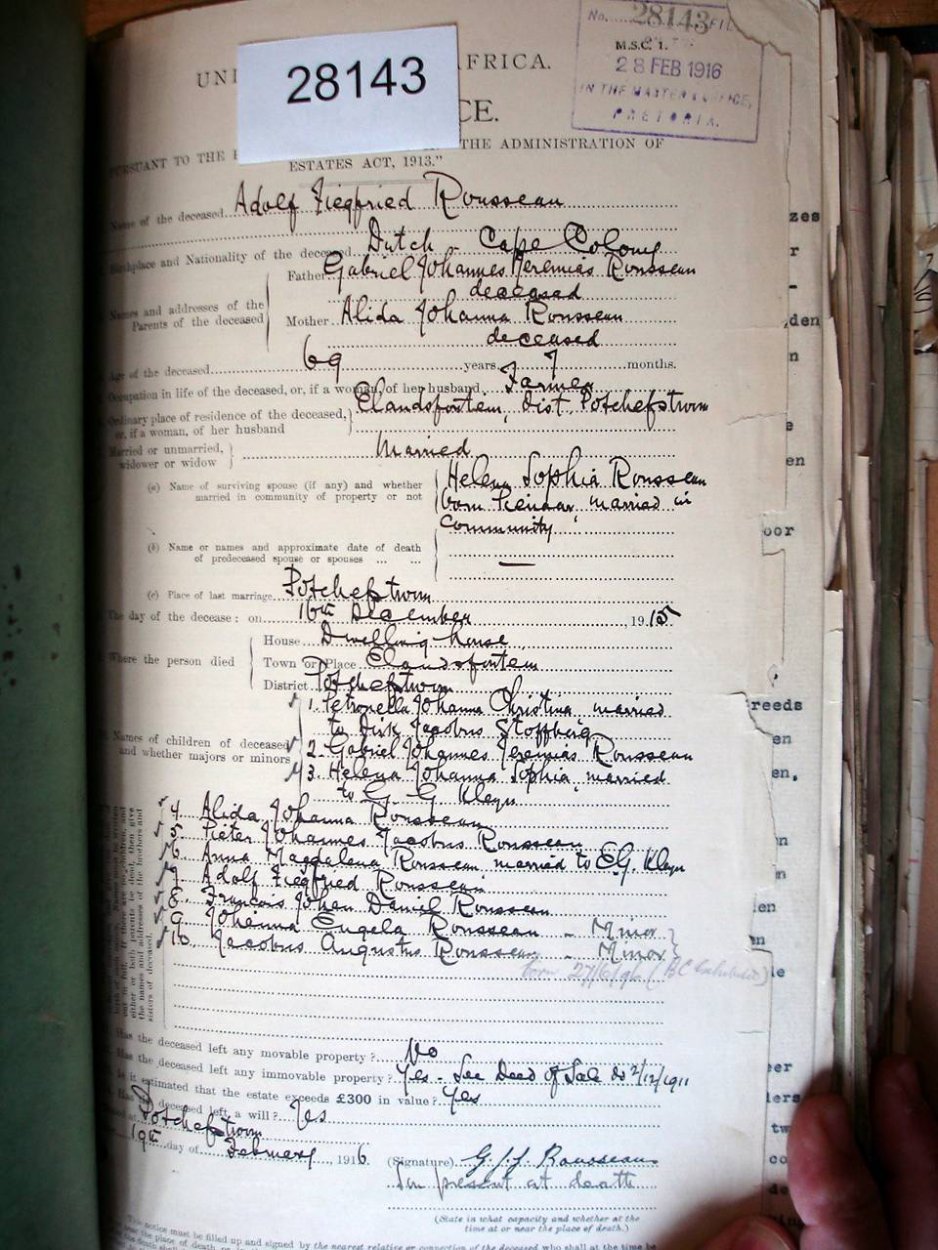 No. 28143 FIL
M.S.C. 1.
28 FEB 1916
IN THE MASTER'S OFFICE,
PRETORIA.
28143
UNI AFRICA.
CE.
PURSUANT TO THE THE ADMINISTRATION OF
ESTATES ACT, 1913."
Name of the deceased Adolf Ziegfried Rousseau
Birthplace and Nationality of the deceased Dutch - Cape Colony
Names and addresses of the Parents of the deceased
Father Gabriel Johannes Jeremias Rousseau
deceased
Mother Alida Johanna Rousseau
deceased
Age of the deceased 69 years 7 months.
Occupation in life of the deceased, or, if a woman, of her husband Farmer
Ordinary place of residence of the deceased, or, if a woman, of her husband Elandsfontein, Dist. Potchefstroom
Married or unmarried, widower or widow Married
(a) Name of surviving spouse (if any) and whether married in community of property or not
Helena Sophia Rousseau
born married in
community
(b) Name or names and approximate date of death of predeceased spouse or spouses ... ... —
(c) Place of last marriage Potchefstroom
The day of the decease: on 16th December, 1915
Where the person died
House Dwelling house
Town or Place Elandsfontein
District Potchefstroom
Names of children of deceased and whether majors or minors
1. Petronella Johanna Christina married
to Dirk Jacobus Stoffberg
2. Gabriel Johannes Jeremias Rousseau
3. Helena Johanna Sophia married
to G. G. Kleyn
4. Alida Johanna Rousseau
5. Pieter Johannes Jacobus Rousseau
6. Anna Magdalena Rousseau married to E.G. Kleyn
7. Adolf Ziegfried Rousseau
8. Francois Johan Daniel Rousseau
9. Johanna Engela Rousseau - Minor
10. Jacobus Augustus Rousseau - Minor
born
Has the deceased left any movable property? No
Has the deceased left any immovable property? Yes - See Deed of Sale dd 2/12/1911
Is it estimated that the estate exceeds £300 in value? Yes
Has the deceased left a will? Yes
Dated at Potchefstroom
19th day of February, 1916.
(Signature) G.J.J. Rousseau
present at death
(State in what capacity and whether at the
time at or near the place of death.)
This notice must be filled up and signed by the nearest relative or connection of the deceased who shall at the time be